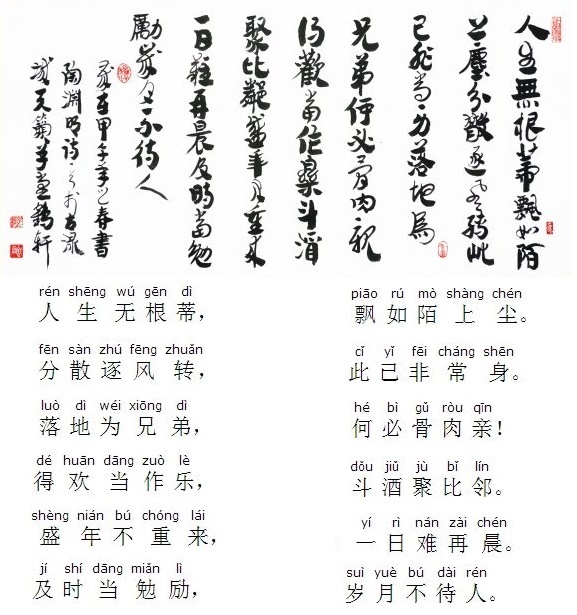 人生無根蒂飄如陌
上塵分散逐風轉此
已非常身落地為
兄弟何必骨肉親
得歡當作樂斗酒
聚比鄰盛年不重來
一日難再晨及時當勉
勵歲月不待人
歲在甲午年之春書
陶淵明詩一首於古
天籟草堂鶴軒
rén shēng wú gēn dì piāo rú mò shàng chén
人生无根蒂，飘如陌上尘。
fēn sàn zhú fēng zhuǎn cǐ yǐ fēi cháng shēn
分散逐风转，此已非常身。
luò dì wéi xiōng dì hé bì gǔ ròu qīn
落地为兄弟，何必骨肉亲！
dé huān dāng zuò lè dǒu jiǔ jù bǐ lín
得欢当作乐，斗酒聚比邻。
shèng nián bú chóng lái yí rì nán zài chén
盛年不重来，一日难再晨。
jí shí dāng miǎn lì suì yuè bú dài rén
及时当勉励，岁月不待人。